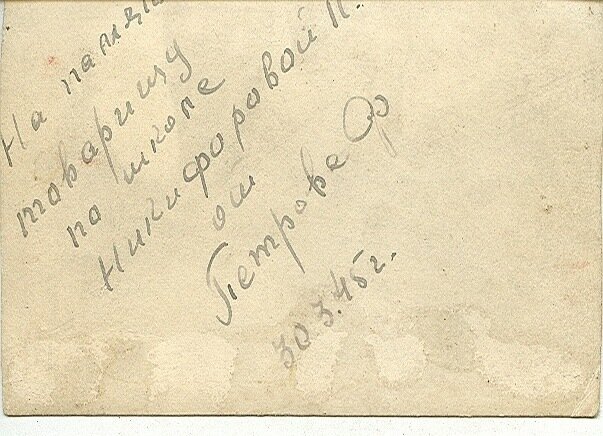 На память
товарищу
по школе
Никифоровой П.
от
Петрова Ф
30 3.45 г.